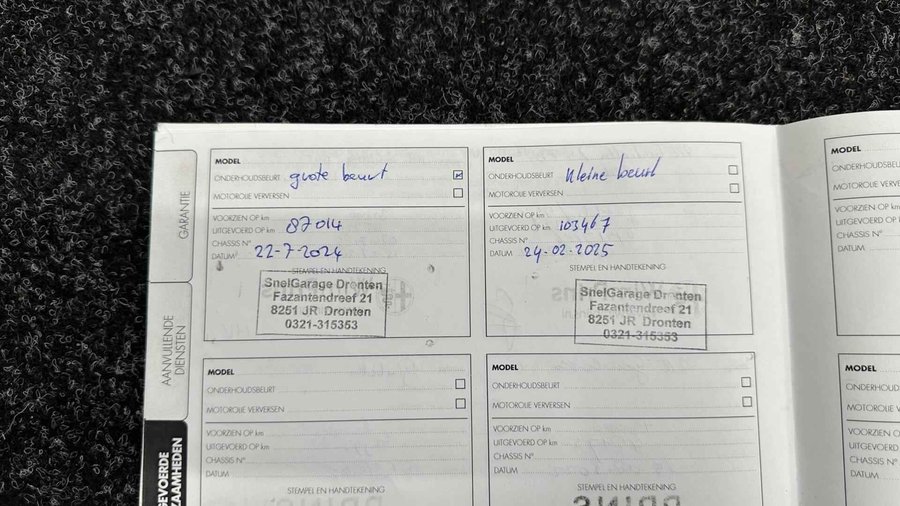 GARANTIE
AANVULLENDE
DIENSTEN
GEVOERDE
ZAAMHEDEN
MODEL
ONDERHOUDSBEURT grote beurt
MOTOROLIE VERVERSEN
VOORZIEN OP km
UITGEVOERD OP km 87014
CHASSIS N°
DATUM 22-7-2024
STEMPEL EN HANDTEKENING
SnelGarage Dronten
Fazantendreef 21
8251 JR Dronten
0321-315353
MODEL
ONDERHOUDSBEURT kleine beurt
MOTOROLIE VERVERSEN
VOORZIEN OP km
UITGEVOERD OP km 103467
CHASSIS N°
DATUM 24-02-2025
STEMPEL EN HANDTEKENING
SnelGarage Dronten
Fazantendreef 21
8251 JR Dronten
0321-315353
MODEL
ONDERHOUDSB
MOTOROLIE
VOORZIEN OP
UITGEVOERD
CHASSIS N°
DATUM
MODEL
ONDERHOUDSBEURT
MOTOROLIE VERVERSEN
VOORZIEN OP km
UITGEVOERD OP km
CHASSIS N°
DATUM
STEMPEL EN HANDTEKENING
MODEL
ONDERHOUDSBEURT
MOTOROLIE VERVERSEN
VOORZIEN OP km
UITGEVOERD OP km
CHASSIS N°
DATUM
STEMPEL EN HANDTEKENING
MODEL
ONDERHOUD
MOTOROLIE
VOORZIEN OP
UITGEVOERD
CHASSIS N°
DATUM